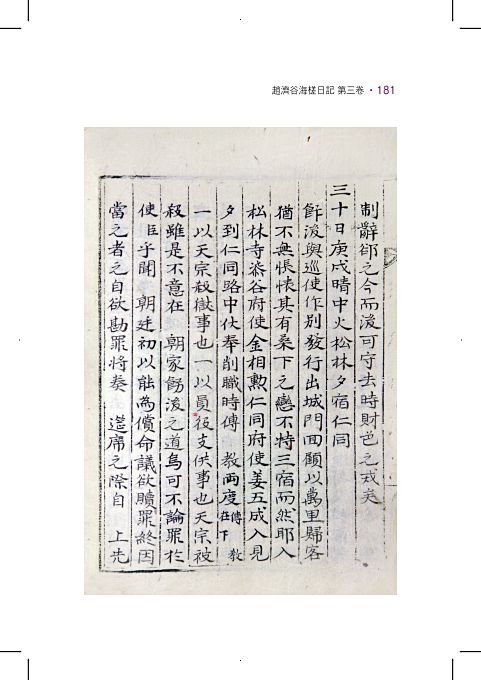 趙濟谷海槎日記 第三卷 · 181
制辭却之今而後可守去時財色之戒矣
三十日庚戌晴中火松林夕宿仁同
飯後與巡使作別發行出城門回顧以萬里歸客
猶不無悵悵其有桑下之戀不特三宿而然耶入
松林寺漆谷府使金相勲仁同府使姜五成入見
夕到仁同路中伏奉削職時傳 教兩度傳教在下
一以天宗殺獄事也一以員役支供事也天宗被
殺雖是不意在 朝家飭後之道烏可不論罪於
使臣乎聞 朝廷初以能爲償命議欲贖罪終因
當之者之自欲勘罪將奏 筵席之際自 上先